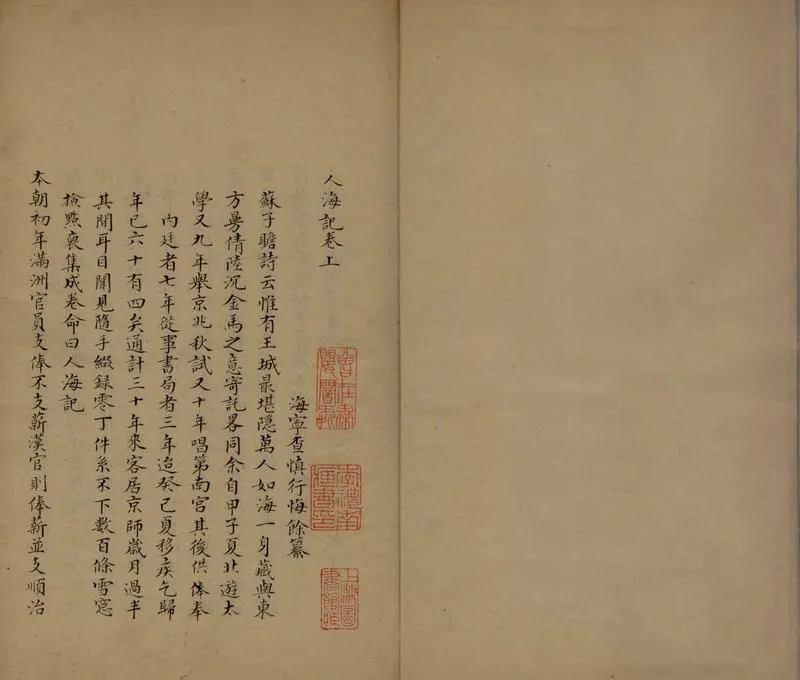 人海記卷上
海寧查慎行悔餘纂
蘇子瞻詩云惟有王城最堪隱萬人如海一身藏與東
方曼倩陸沉金馬之意寄託畧同余自甲子夏北遊太
學又九年舉京兆秋試又十年唱第南宮其後供俸奉
內廷者七年從事書局者三年迨癸巳夏移疾乞歸
年已六十有四矣通計三十年來客居京師歲月過半
其間耳目聞見隨手綴録零丁件系不下數百條雪窓
檢點裒集成卷命曰人海記
本朝初年滿洲官員支俸不支薪漢官則俸薪並支順治
上海圖書館藏